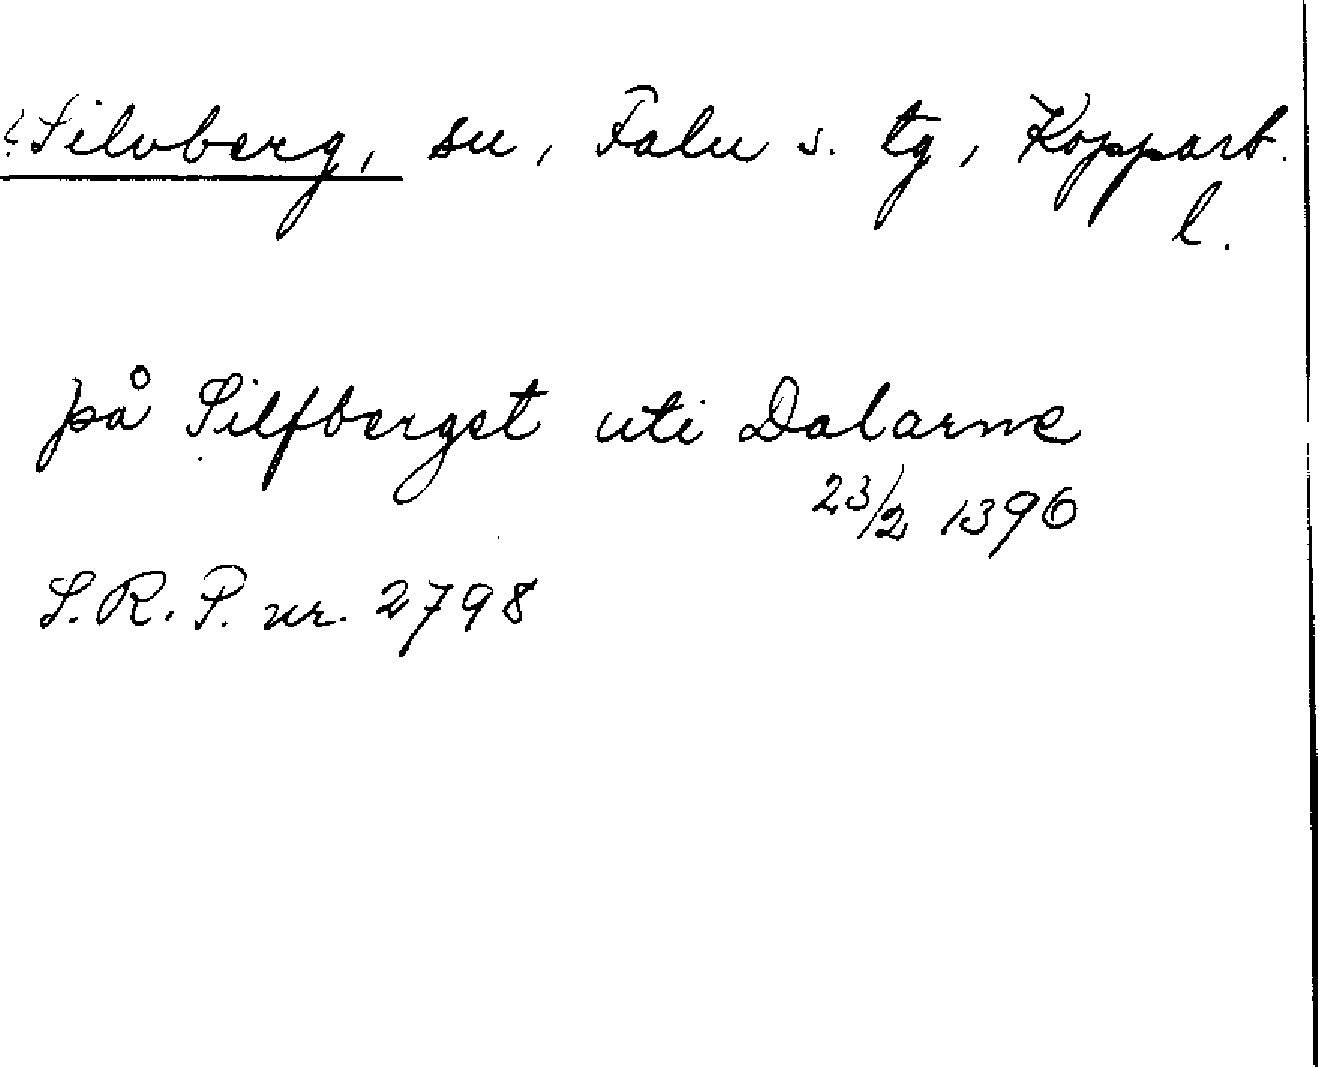 Silvberg, sn, Falu s. tg, Kopparb.
l.
på Silfberget uti Dalarne
23/2 1396
S.R.P. nr. 2798